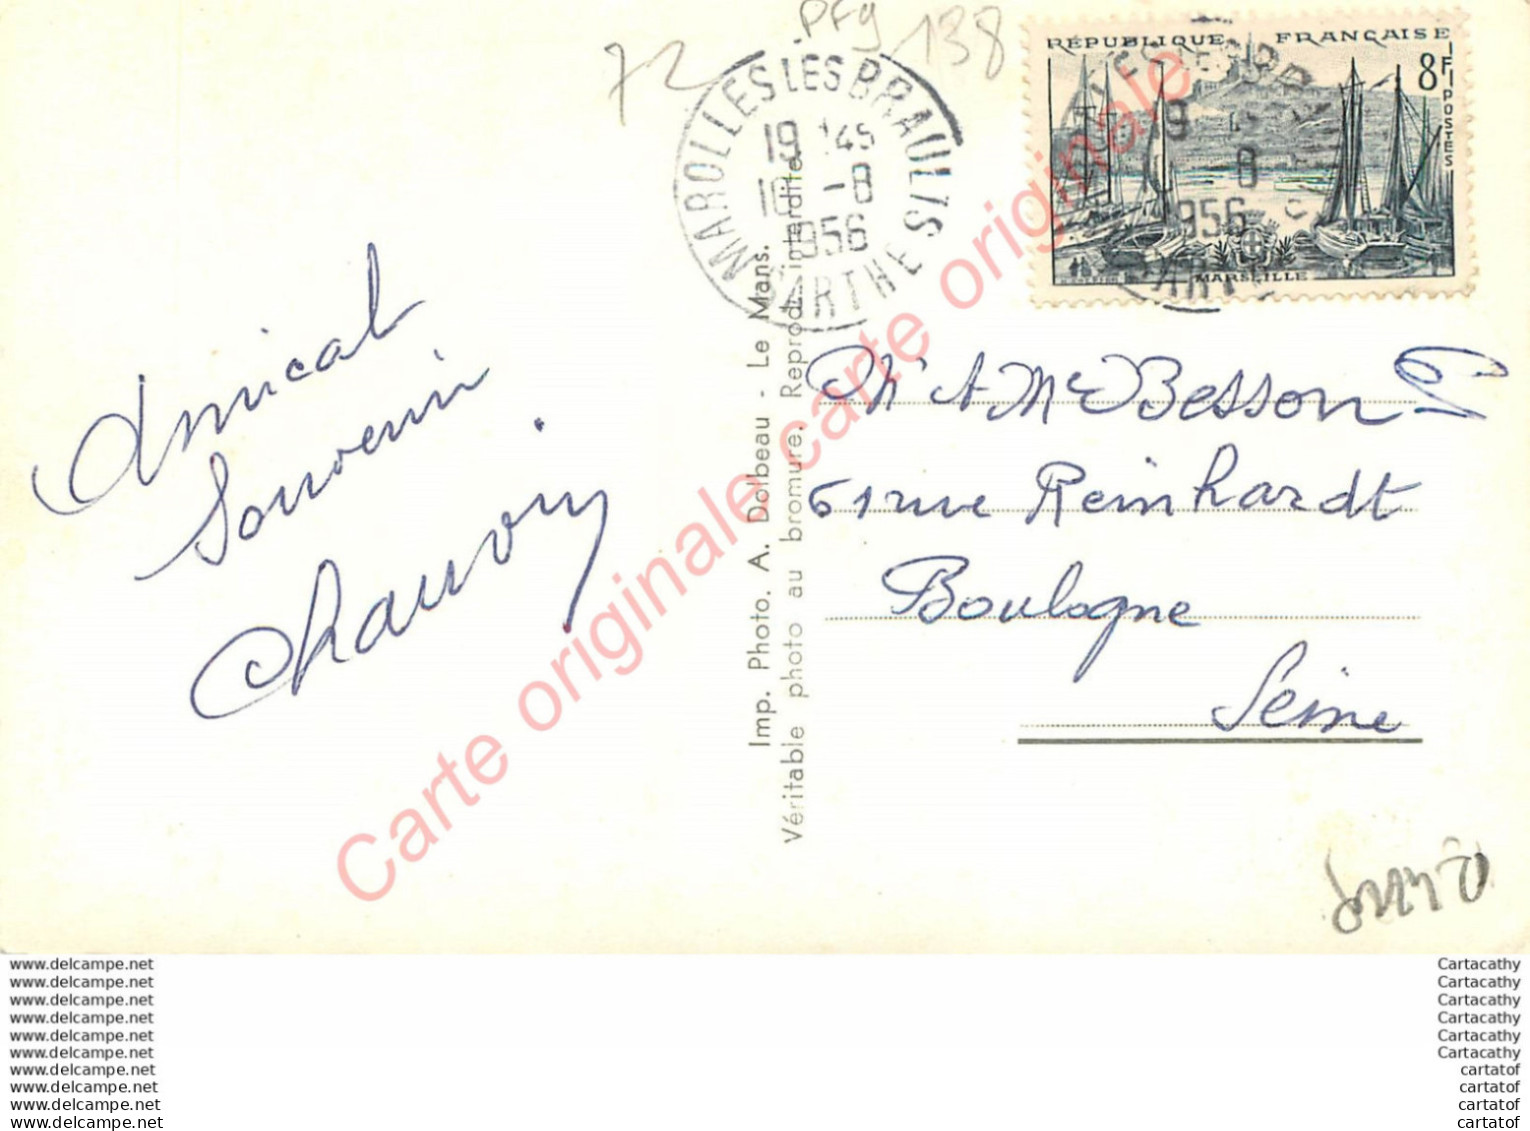 72
PFg
138
MAROLLES LES BRAULTS
19 45
10 -8
1956
SARTHE
RÉPUBLIQUE FRANÇAISE
8F
POSTES
MARSEILLE
Amical
Souvenir
Imp. Photo. A. Dolbeau - Le Mans.
Véritable photo au bromure. Reprod. interdite.
Besson
61 rue Reinhardt
Boulogne
Seine
Carte originale carte originale
www.delcampe.net
www.delcampe.net
www.delcampe.net
www.delcampe.net
www.delcampe.net
www.delcampe.net
www.delcampe.net
www.delcampe.net
www.delcampe.net
www.delcampe.net
Cartacathy
Cartacathy
Cartacathy
Cartacathy
Cartacathy
Cartacathy
cartatof
cartatof
cartatof
cartatof